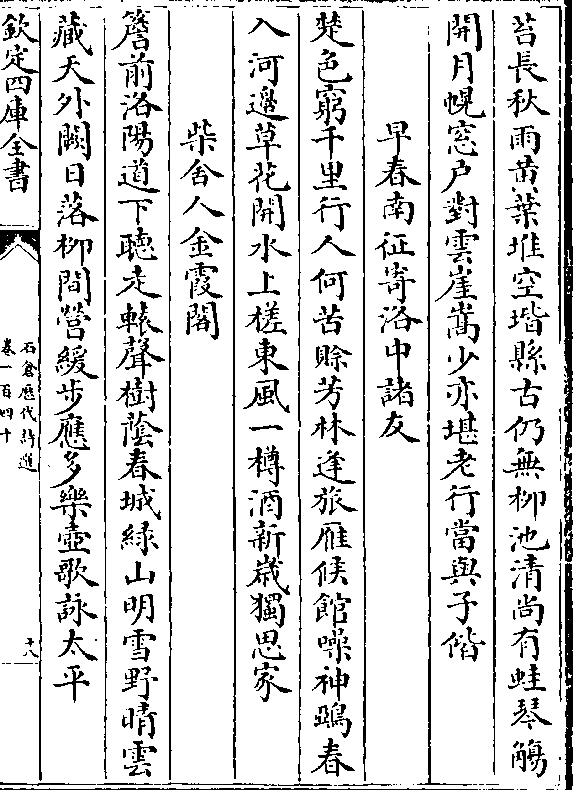 苔長秋雨黄葉堆空堦縣古仍無柳池清尚有蛙琴觴
開月幌窓户對雲崖嵩少亦堪老行當與子偕
早春南征寄洛中諸友
楚色窮千里行人何苦賖芳林逢旅雁候館噪神鵶春
入河邊草花開水上槎東風一樽酒新歳獨思家
柴舍人金霞閣
簷前洛陽道下聽走轅聲樹蔭春城緑山明雪野晴雲
藏天外闕日落栁間營緩步應多樂壺歌詠太平
欽定四庫全書
石倉歴代詩選
卷一百四十
十八